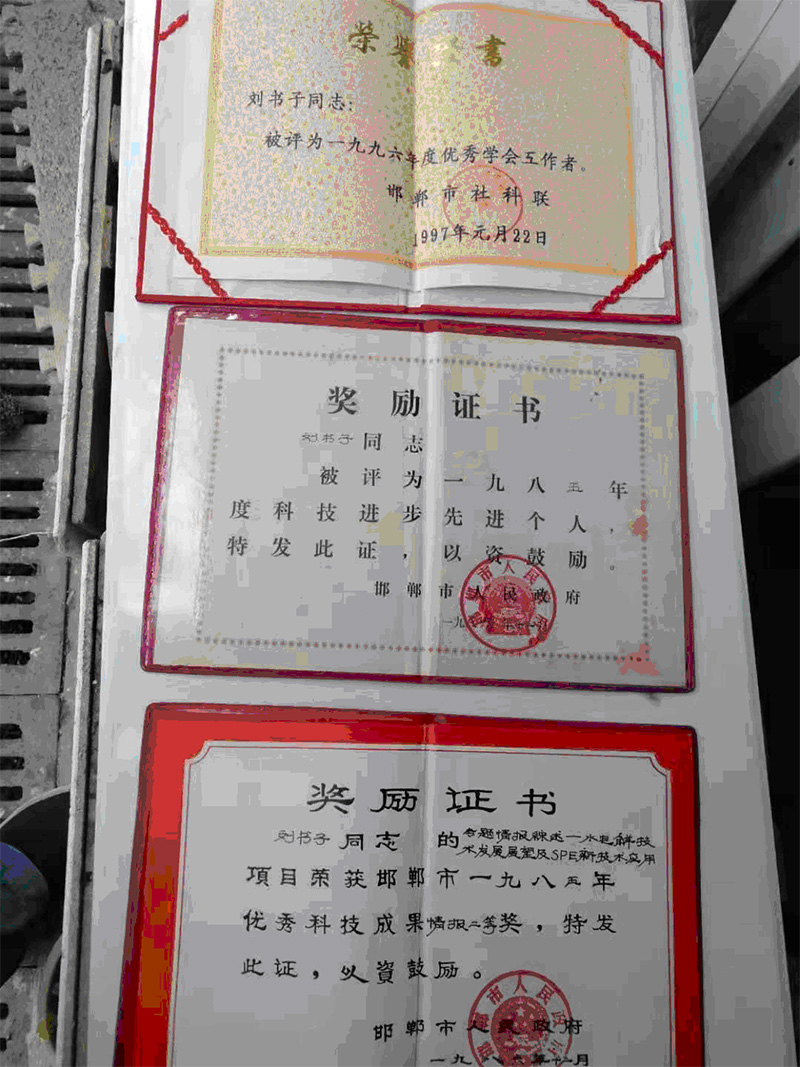 荣誉证书
刘书子同志：
被评为一九九六年度优秀学会工作者。
邯郸市社科联
1997年元月22日
奖励证书
刘书子同志
被评为一九八五年
度科技进步先进个人，
特发此证，以资鼓励。
邯郸市人民政府
奖励证书
刘书子同志的专题情报综述—水电解技
术发展展望及SPE新技术应用
项目荣获邯郸市一九八五年
优秀科技成果情报二等奖，特发
此证，以资鼓励。
邯郸市人民政府
一九八六年十一月